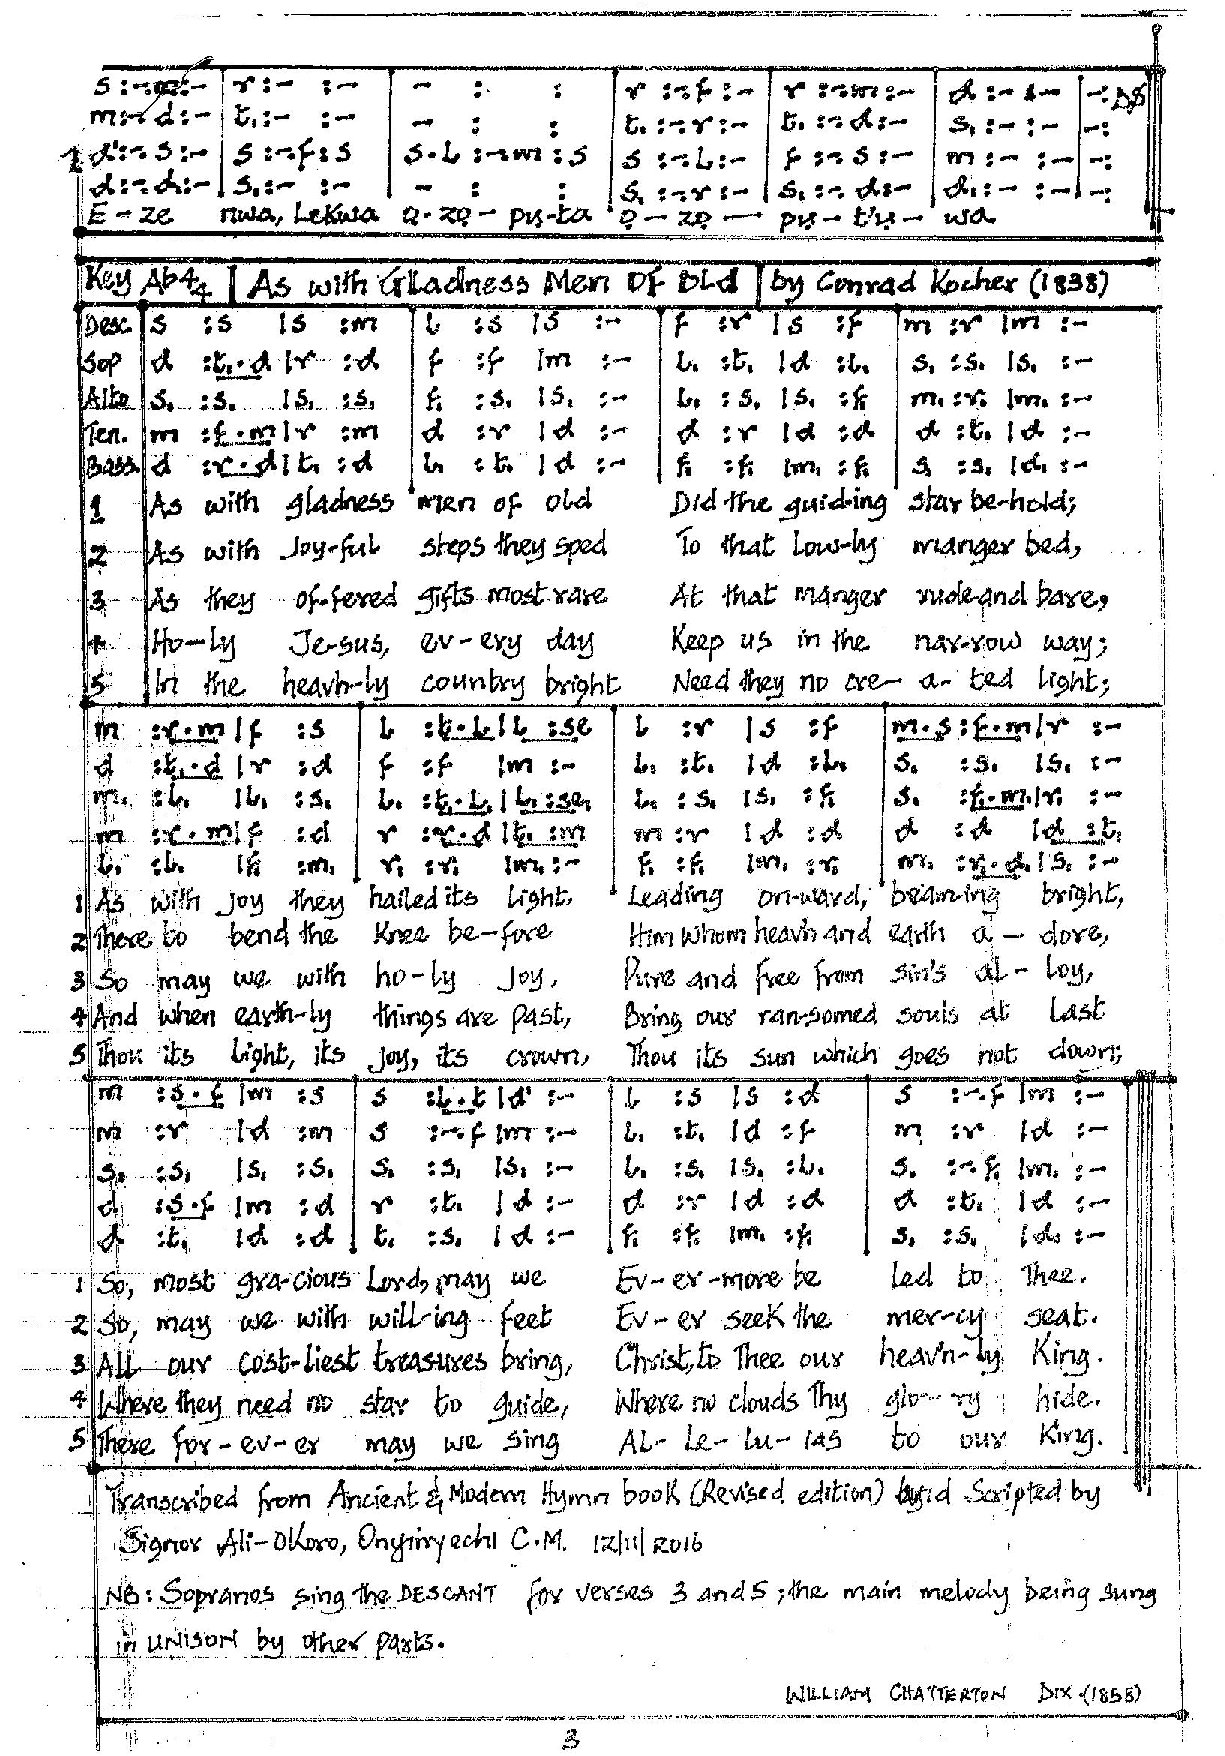 s :-.m :- | r :- :- | - : : | r :-.f :- | r :-.m :- | d :- :- | - : DS
m :-.d :- | t, :- :- | - : : | t, :-.r :- | t, :-.d :- | s, :- :- | - :
d' :-.s :- | s :-.f :s | s.l :-.m :s | s :-.l :- | f :-.s :- | m :- :- | - :
d :-.d :- | s, :- :- | - : : | s, :-.r :- | s, :-.d :- | d, :- :- | - :
E - ze nwa, Lekwa Ọ-zọ - pụ-ta Ọ - zọ — pụ - tụ - wa
Key Ab 4/4 | As with Gladness Men Of Old | by Conrad Kocher (1838)
Desc. s :s |s :m | l :s |s :- | f :r |s :f | m :r |m :-
Sop d :t,.d |r :d | f :f |m :- | l, :t, |d :l, | s, :s, |s, :-
Alto s, :s, |s, :s, | f, :s, |s, :- | l, :s, |s, :f, | m, :r, |m, :-
Ten. m :f.m |r :m | d :r |d :- | d :r |d :d | d :t, |d :-
Bass d :r.d |t, :d | l, :t, |d :- | f, :f, |m, :f, | s, :s, |d, :-
1 As with gladness men of old Did the guid-ing star be-hold;
2 As with Joy-ful steps they sped To that Low-ly manger bed,
3 As they of-fered gifts most rare At that manger rude and bare,
4 Ho-ly Je-sus, ev-ery day Keep us in the nar-row way;
5 In the heav'n-ly country bright Need they no cre-a-ted light;
m :r.m |f :s | l :t.l |l :se | l :r |s :f | m.s :f.m |r :-
d :t,.d |r :d | f :f |m :- | l, :t, |d :l, | s, :s, |s, :-
m, :l, |l, :s, | l, :t,.l, |l, :se, | l, :s, |s, :f, | s, :f,.m, |r, :-
m :r.m |f :d | r :r.d |t, :m | m :r |d :d | d :d |d :t,
l, :l, |f, :m, | r, :r, |m, :- | f, :f, |m, :r, | m, :r,.d, |s, :-
1 As with Joy they hailed its Light, Leading on-ward, beam-ing bright,
2 There to bend the Knee be-fore Him whom heav'n and earth a - dore,
3 So may we with ho-ly Joy, Pure and free from sin's al - loy,
4 And when earth-ly things are past, Bring our ran-somed souls at Last
5 Thou its Light, its Joy, its crown, Thou its sun which goes not down;
m :s.f |m :s | s :l.t |d' :- | l :s |s :d | s :-.f |m :-
m :r |d :m | s :-.f |m :- | l, :t, |d :f | m :r |d :-
s, :s, |s, :s, | s, :s, |s, :- | l, :s, |s, :l, | s, :-.f, |m, :-
d :s.f |m :d | r :t, |d :- | d :r |d :d | d :t, |d :-
d :t, |d :d | t, :s, |d :- | f, :f, |m, :f, | s, :s, |d, :-
1 So, most gra-cious Lord, may we Ev-er-more be led to Thee.
2 So, may we with will-ing feet Ev-er seek the mer-cy seat.
3 All our cost-liest treasures bring, Christ, to Thee our heav'n-ly King.
4 Where they need no star to guide, Where no clouds Thy glo-ry hide.
5 There for-ev-er may we sing Al-le-lu-ias to our King.
Transcribed from Ancient & Modern Hymn book (Revised edition) Scripted by
Signor Ali-Okoro, Onyinyechi C.M. 12/11/2016
NB: Sopranos sing the DESCANT for verses 3 and 5; the main melody being sung
in UNISON by other parts.
WILLIAM CHATTERTON DIX (1858)
3